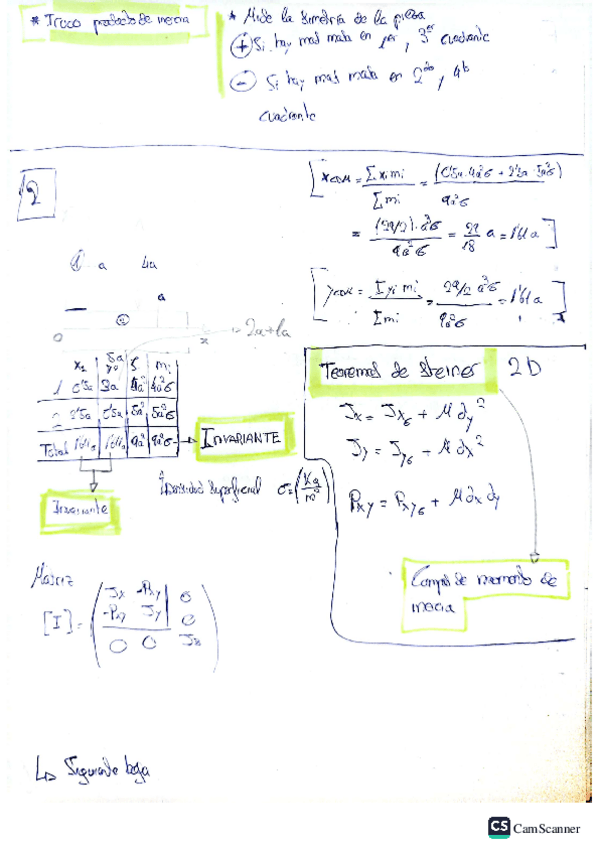 * Truco producto de inercia
* Mide la simetría de la pieza
(+) Si hay mas masa en 1er, 3er cuadrante
(-) Si hay mas masa en 2do, 4to
cuadrante
2
[xcom = Σ xi mi / Σ mi = (0'5a·4a²σ + 2'5a·5a²σ) / 9a²σ
= (29/2)·a³σ / 9a²σ = 29/18 a = 1'61a]
[ycom = Σ yi mi / Σ mi = 29/2 a³σ / 9a²σ = 1'61a]
1 a 4a
a
2
0 x
2a+1a
1 0'5a 3a 4a² 4a²σ
2 2'5a 0'5a 5a² 5a²σ
Total 1'61a 1'61a 9a² 9a²σ → INVARIANTE
Invariante
Densidad superficial σ = (Kg/m²)
Teoremas de Steiner 2D
Jx = JxG + M dy²
Jy = JyG + M dx²
Pxy = PxyG + M dx dy
de momento de
inercia
Matriz
[I] = ( Jx -Pxy 0
-Pxy Jy 0
0 0 Jz )
↳ Siguiente hoja
CS CamScanner